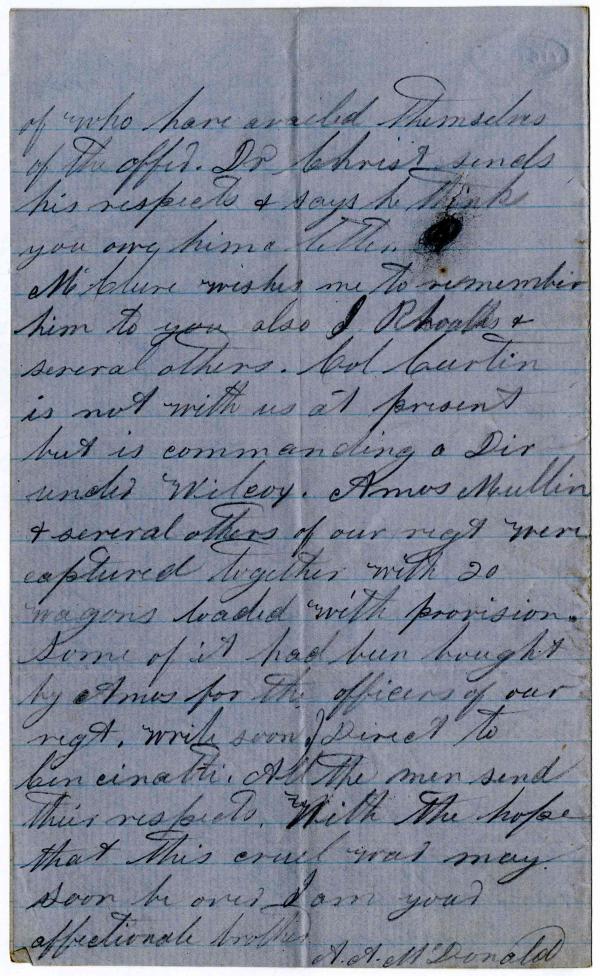 of who have availed themselves
of the offer. Dr Christ sends
his respects & says he thinks
you owe him a letter.
McClure wishes me to remember
him to you also J Rhoads &
several others. Col Curtin
is not with us at present
but is commanding a Div
under Wilcox. Amos Mullin
& several others of our regt were
captured together with 20
wagons loaded with provision.
Some of it had been bought
by Amos for the officers of our
regt. write soon Direct to
Cincinatti. All the men send
their respects. With the hope
that this cruel war may
soon be over I am your
affectionate brother
A. A. McDonald